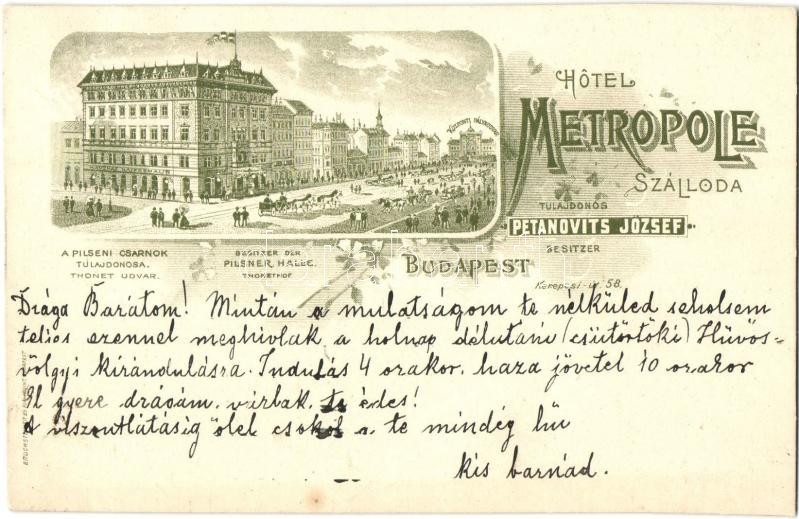 KÖZPONTI PÁLYAUDVAR
HÔTEL
METROPOLE
SZÁLLODA
TULAJDONOS
PETANOVITS JÓZSEF
BESITZER
A PILSENI CSARNOK
TULAJDONOSA.
THONET UDVAR.
BESITZER DER
PILSNER HALLE.
THONETHOF.
BUDAPEST
Kerepesi-út 58.
Drága Barátom! Mintán a mulatságom te nélküled sehol sem
teljes ezennel meghivlak a holnap délutáni (csütörtöki) Hüvös-
völgyi kirándulásra. Indulás 4 orakor, haza jövetel 10 orakor
gyere drágám, várlak, te édes!
A viszontlátásig ölel csokol a te mindég hü
kis barnád.